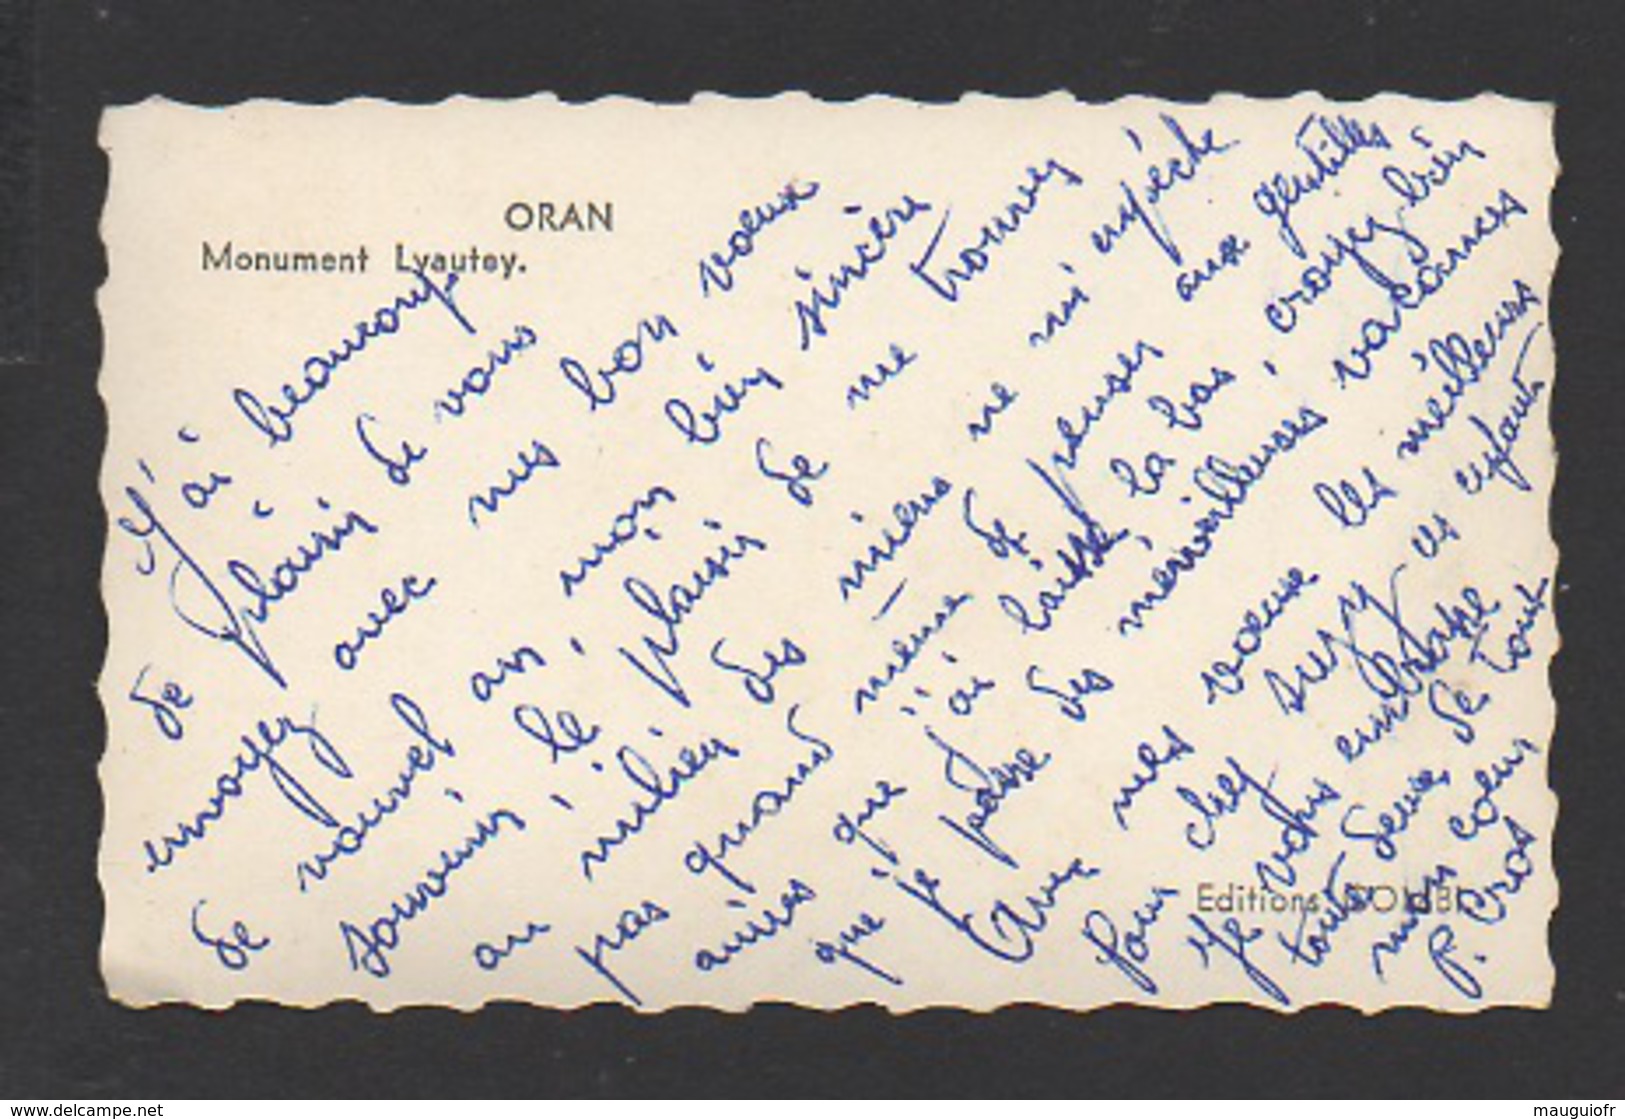 ORAN
Monument Lyautey.
J'ai beaucoup
de plaisir de vous
envoyez avec mes bon voeux
de nouvel an, mon bien sincère
souvenir, le plaisir de me trouver
au milieu des miens ne m'empêche
pas quand même de penser aux gentilles
amies que j'ai laissé, là bas, croyez bien
que je passe des merveilleuses vacances
Avec mes voeux les meilleurs
pour chez suzy et enfants
Je vous embrasse
toute deux de tout
mon coeur
P. Cros
Editions
www.delcampe.net
mauguiofr